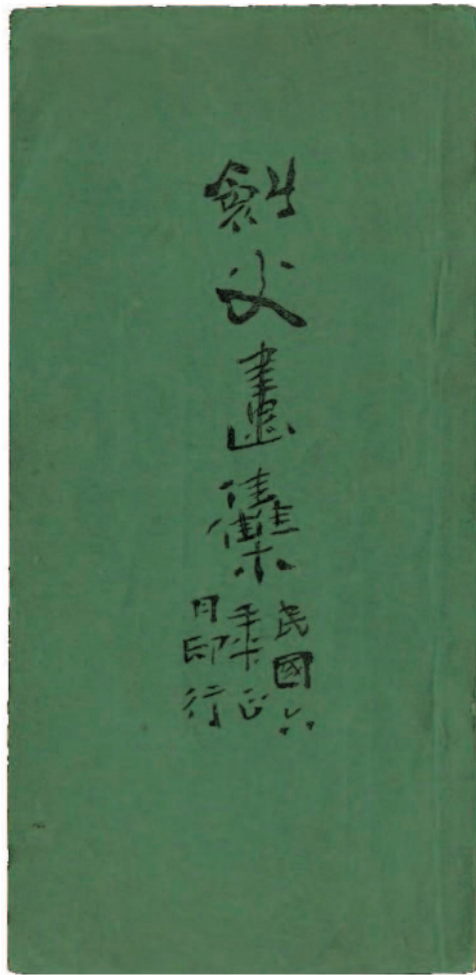 劍父畫集
民國六
年正
月印行